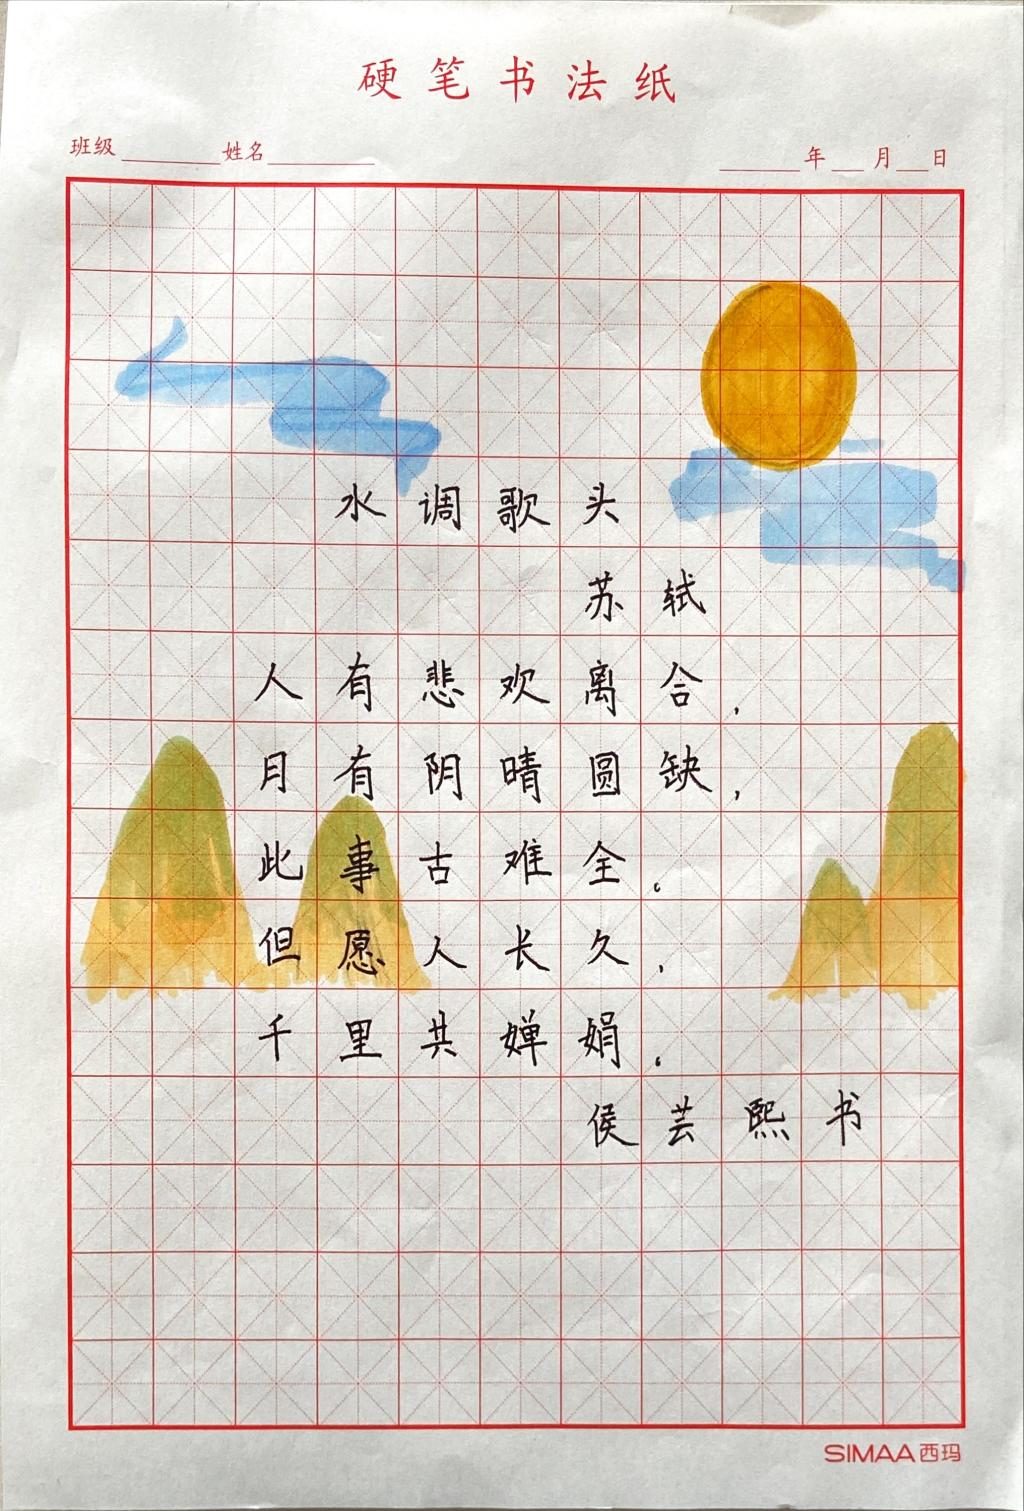 硬笔书法纸
班级 姓名 年 月 日
水调歌头
苏轼
人有悲欢离合，
月有阴晴圆缺，
此事古难全。
但愿人长久，
千里共婵娟。
侯芸熙书
SIMAA西玛